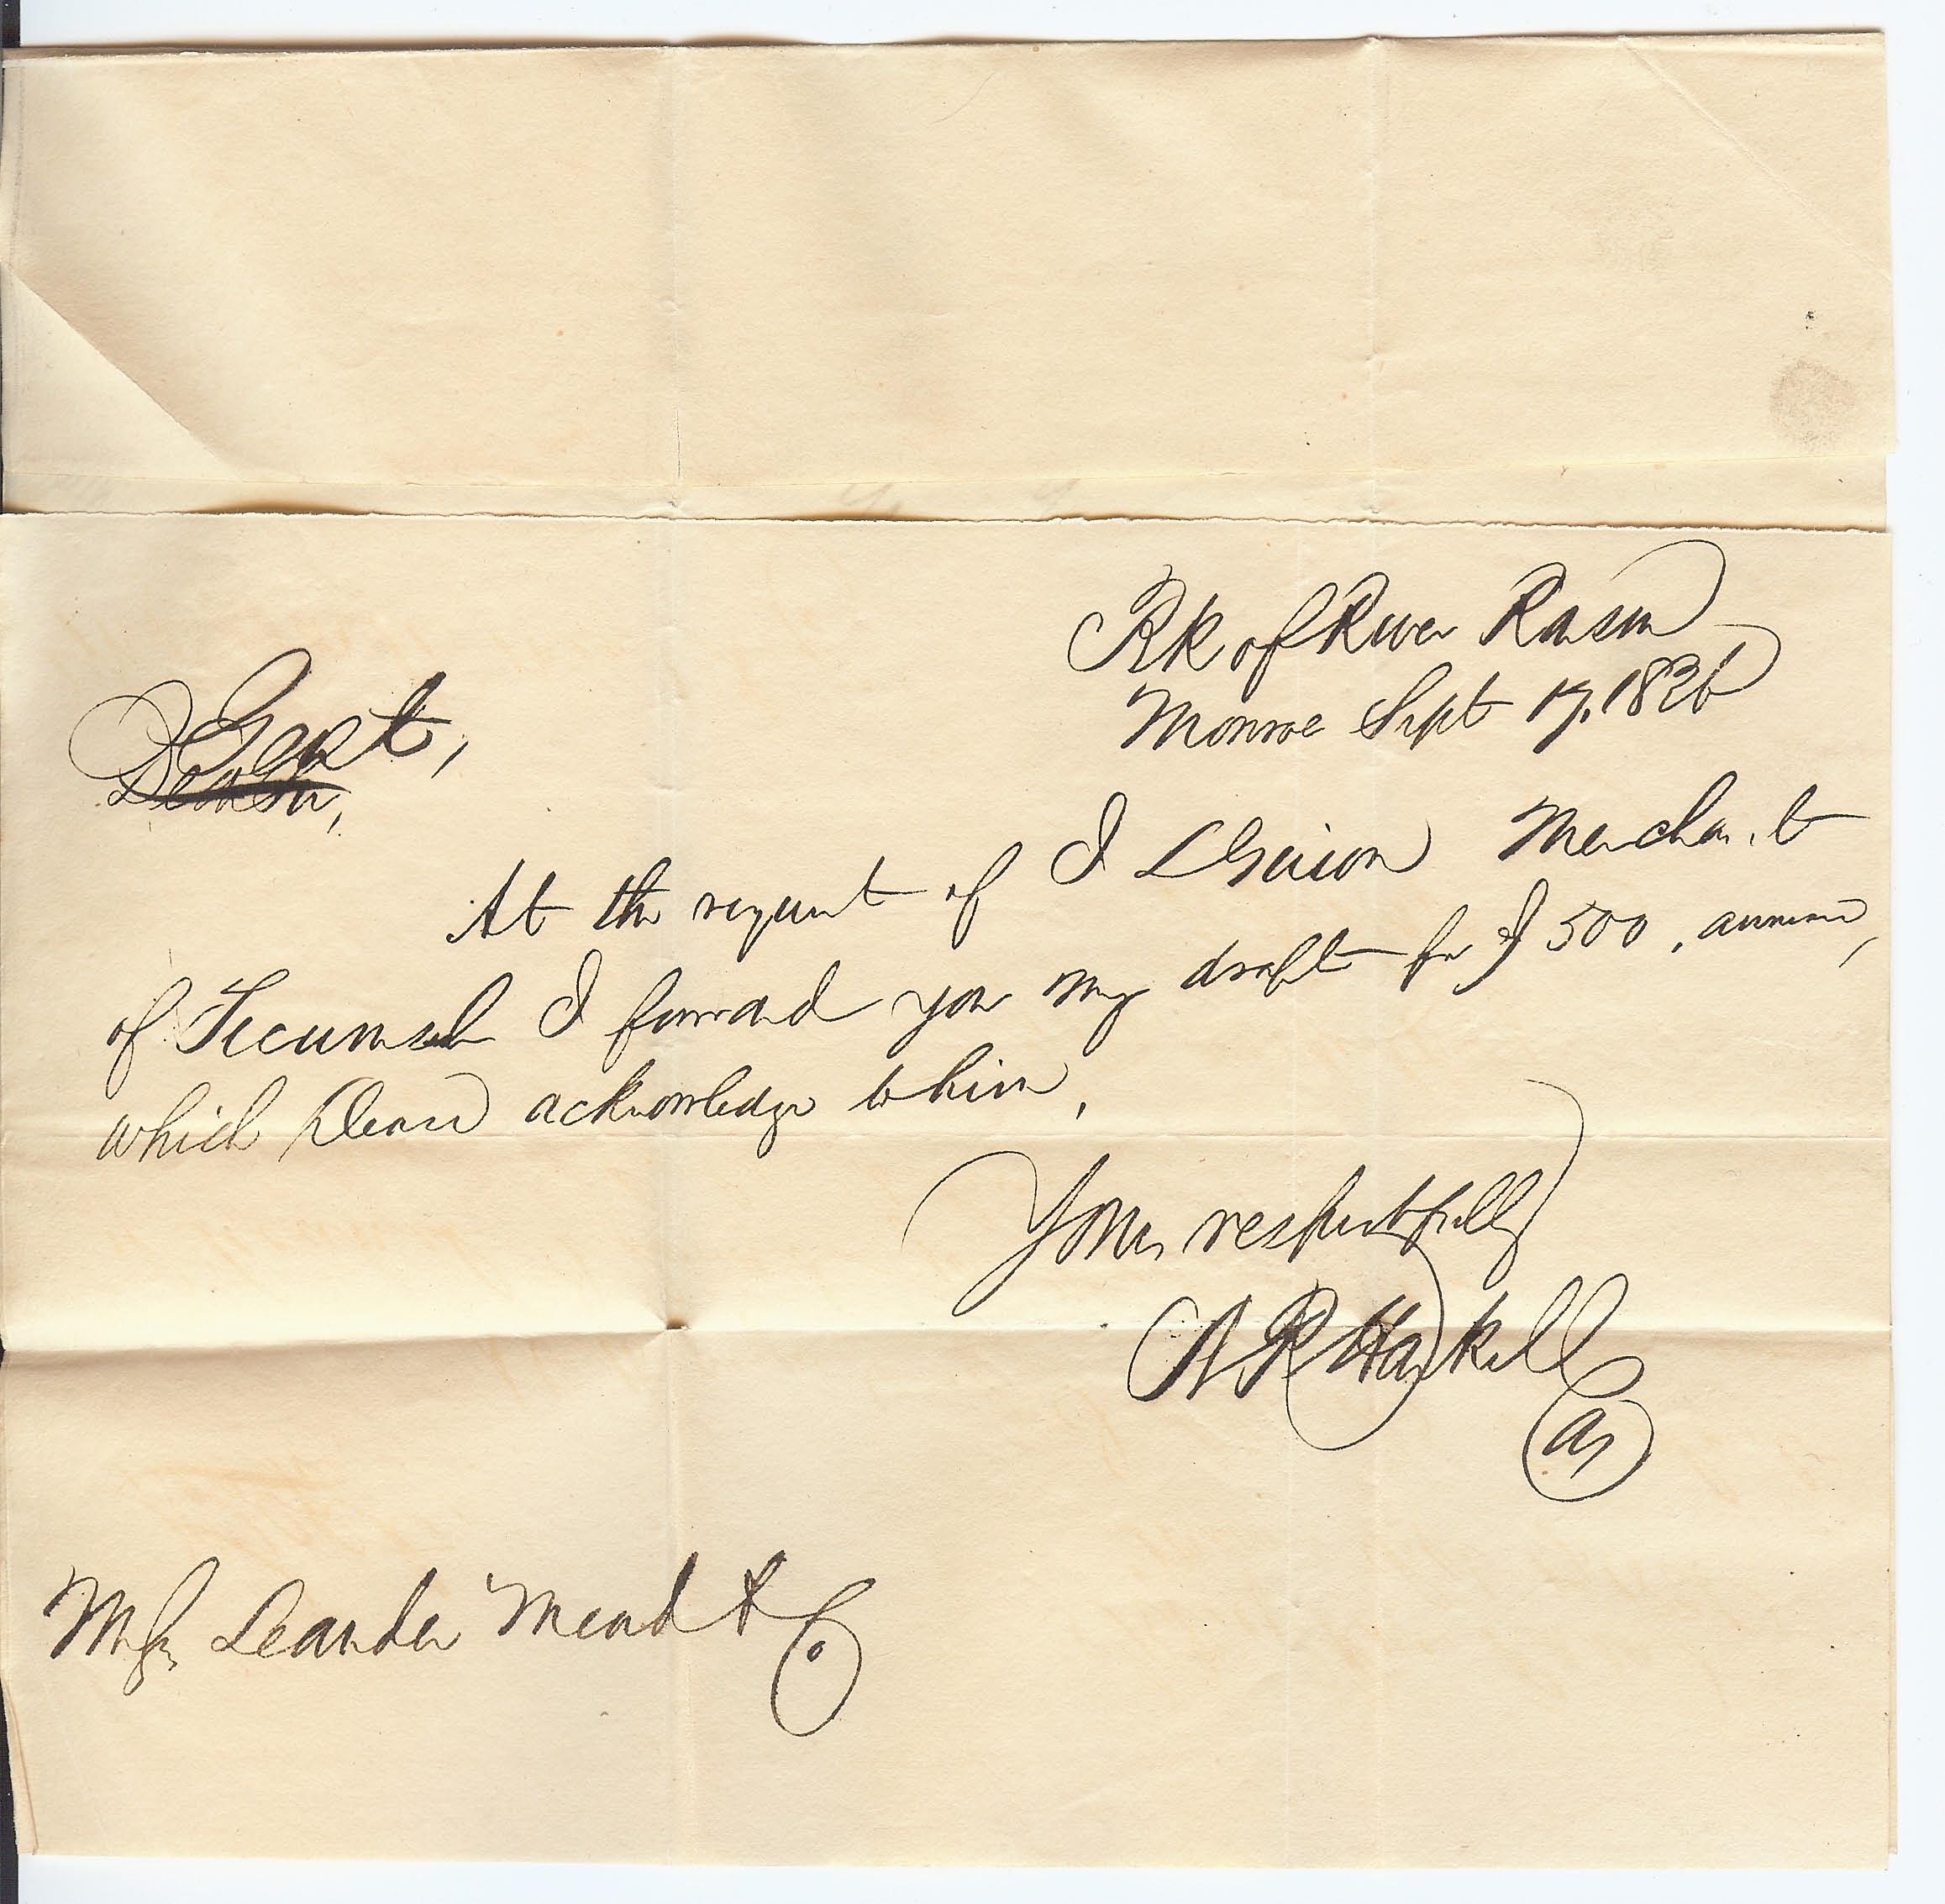 Bk of River Raisin
Monroe Sept 17, 1836
Gent,
Dear Sir,
At the request of Merchant
of Tecumseh I forward you my draft for $500,
which please acknowledge to him,
Yours respectfully
N R Haskell
Cas
Messrs Leander Mead & Co